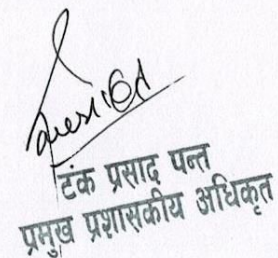 टंक प्रसाद पन्त
प्रमुख प्रशासकीय अधिकृत